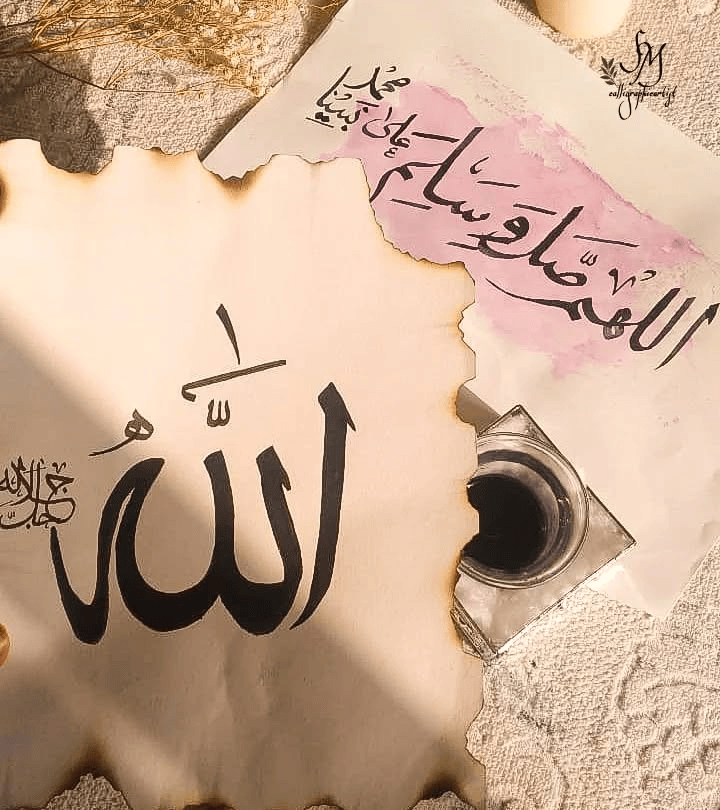 SM
calligraphicartist
اللهم صَلِّ وَسَلِّم على نَبِيِّنا محمد
اللّٰه
جل جلاله